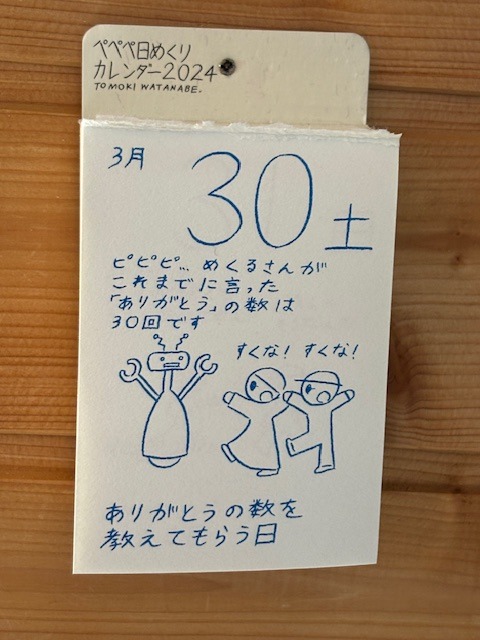 ペペペ日めくり
カレンダー2024
TOMOKI WATANABE.
3月
30 土
ピピピ… めくるさんが
これまでに言った
「ありがとう」の数は
30回です
すくな! すくな!
ありがとうの数を
教えてもらう日